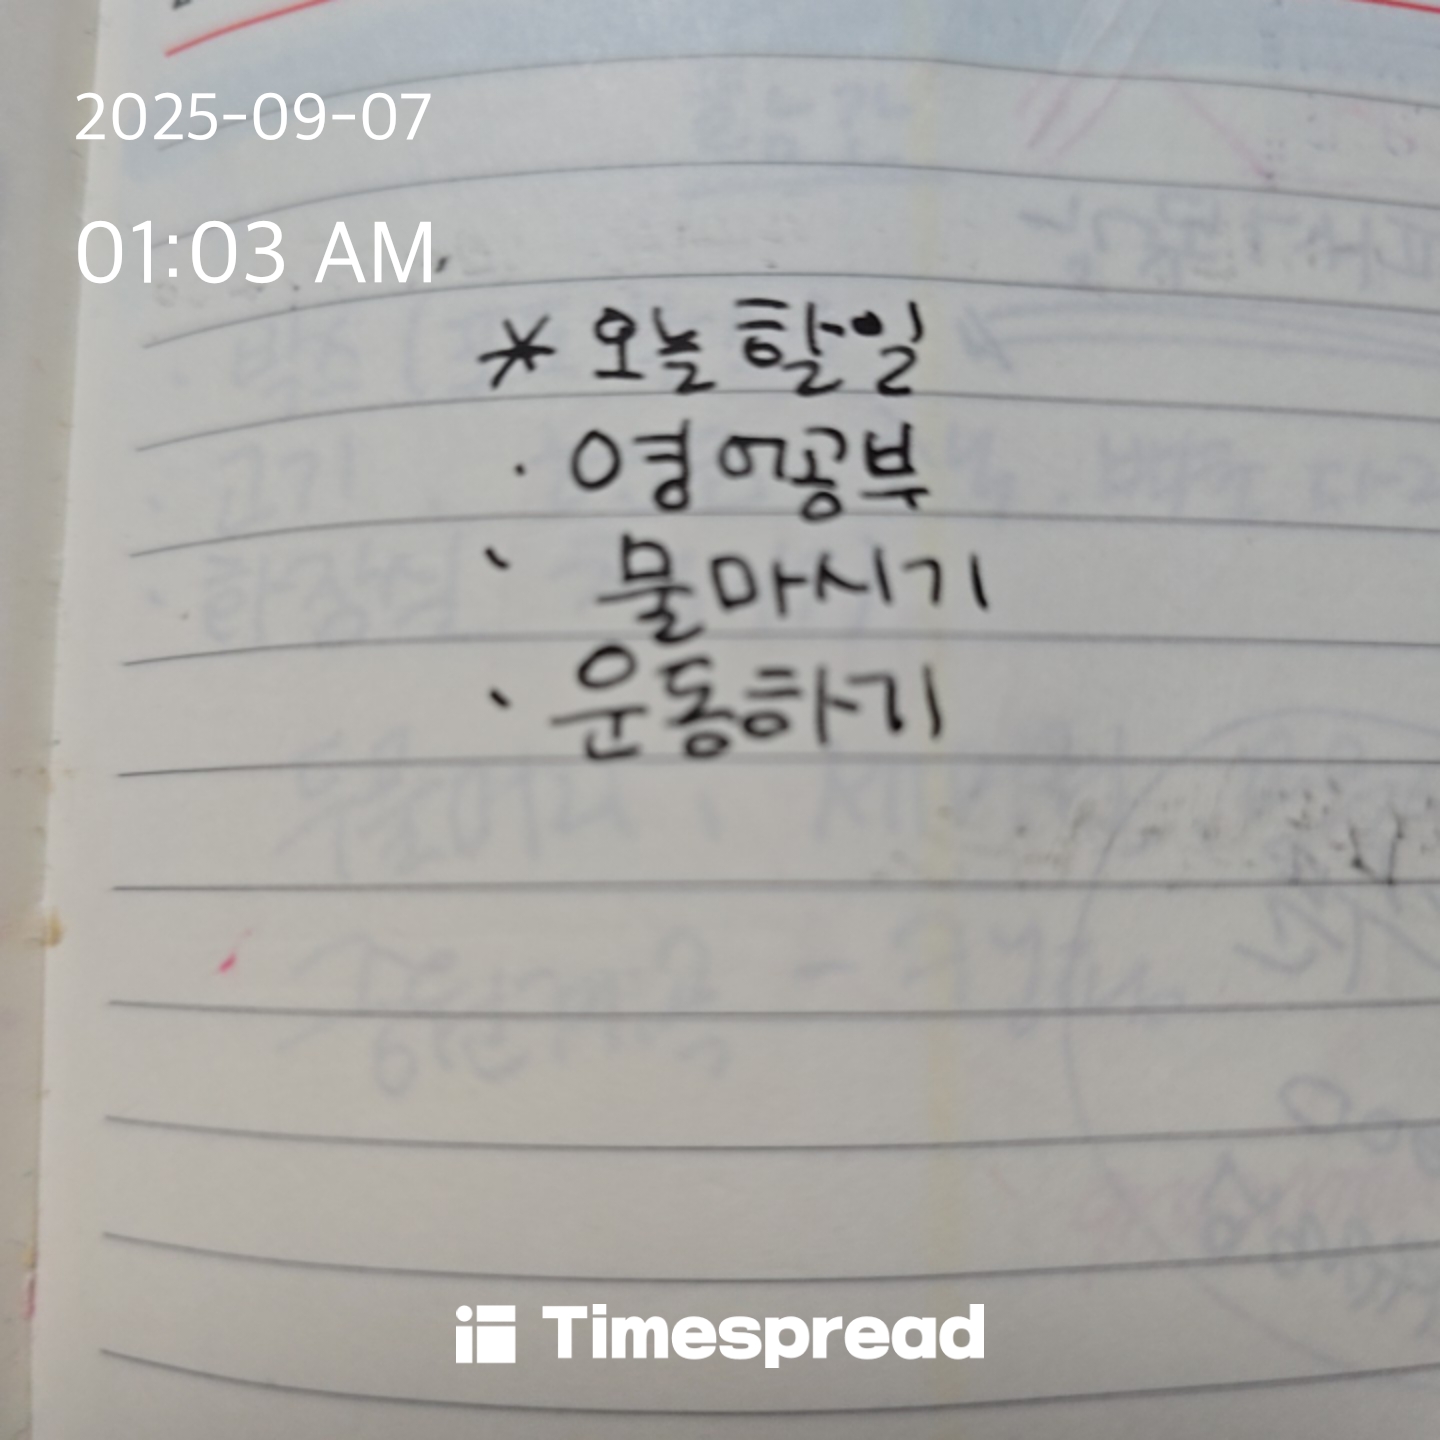 2025-09-07
01:03 AM
* 오늘 할일
· 영어공부
· 물마시기
· 운동하기
Timespread